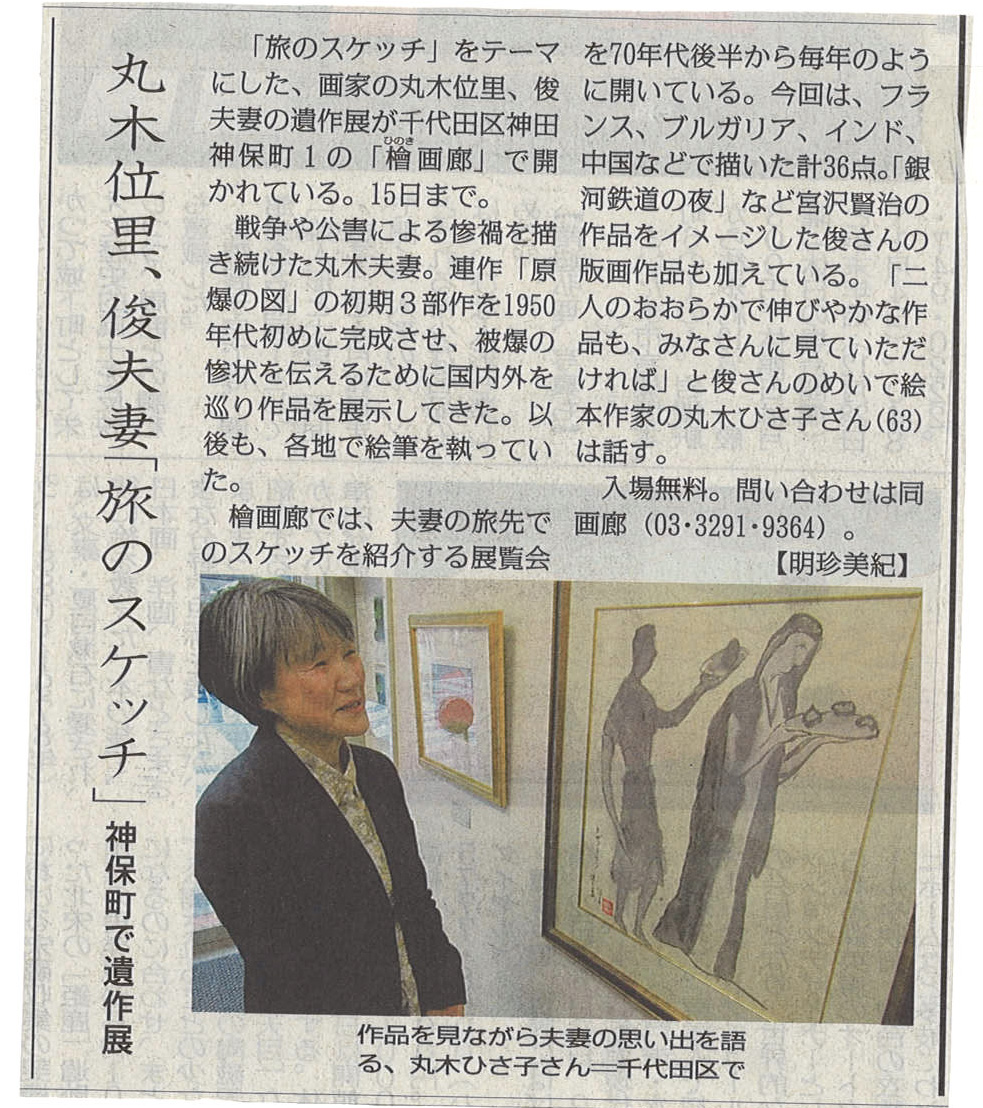 丸木位里、俊夫妻「旅のスケッチ」神保町で遺作展
「旅のスケッチ」をテーマ
にした、画家の丸木位里、俊
夫妻の遺作展が千代田区神田
神保町1の「檜画廊」で開
ひのき
かれている。15日まで。
戦争や公害による惨禍を描
き続けた丸木夫妻。連作「原
爆の図」の初期3部作を1950
年代初めに完成させ、被爆の
惨状を伝えるために国内外を
巡り作品を展示してきた。以
後も、各地で絵筆を執ってい
た。
檜画廊では、夫妻の旅先で
のスケッチを紹介する展覧会
を70年代後半から毎年のよう
に開いている。今回は、フラ
ンス、ブルガリア、インド、
中国などで描いた計36点。「銀
河鉄道の夜」など宮沢賢治の
作品をイメージした俊さんの
版画作品も加えている。「二
人のおおらかで伸びやかな作
品も、みなさんに見ていただ
ければ」と俊さんのめいで絵
本作家の丸木ひさ子さん(63)
は話す。
入場無料。問い合わせは同
画廊(03・3291・9364)。
【明珍美紀】
作品を見ながら夫妻の思い出を語
る、丸木ひさ子さん=千代田区で